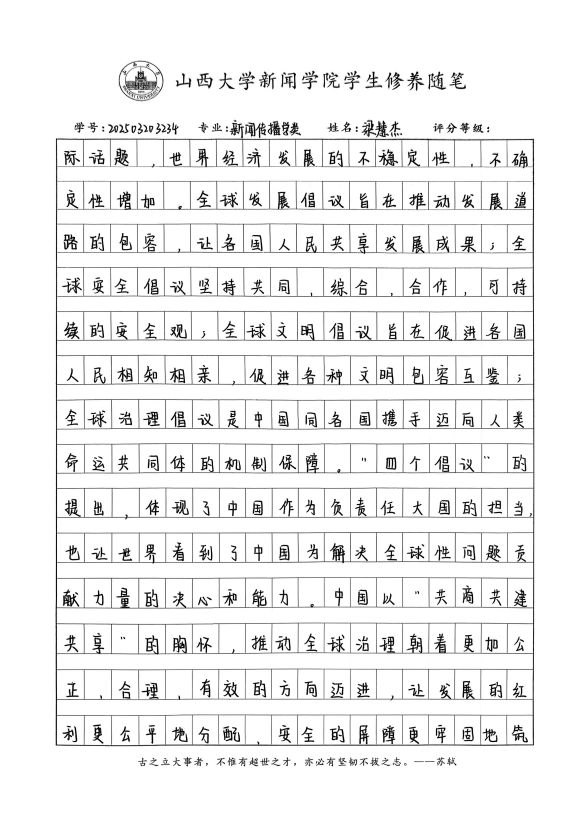 山西大学新闻学院学生修养随笔
学号:202503203234 专业:新闻传播学类 姓名:梁慧杰 评分等级:
际话题,世界经济发展的不稳定性,不确
定性增加。全球发展倡议旨在推动发展道
路的包容,让各国人民共享发展成果;全
球安全倡议坚持共同、综合,合作,可持
续的安全观;全球文明倡议旨在促进各国
人民相知相亲,促进各种文明包容互鉴;
全球治理倡议是中国同各国携手迈向人类
命运共同体的机制保障。“四个倡议”的
提出,体现了中国作为负责任大国的担当,
也让世界看到了中国为解决全球性问题贡
献力量的决心和能力。中国以“共商共建
共享”的胸怀,推动全球治理朝着更加公
正、合理、有效的方向迈进,让发展的红
利更公平地分配、安全的屏障更牢固地筑
古之立大事者，不惟有超世之才，亦必有坚韧不拔之志。——苏轼